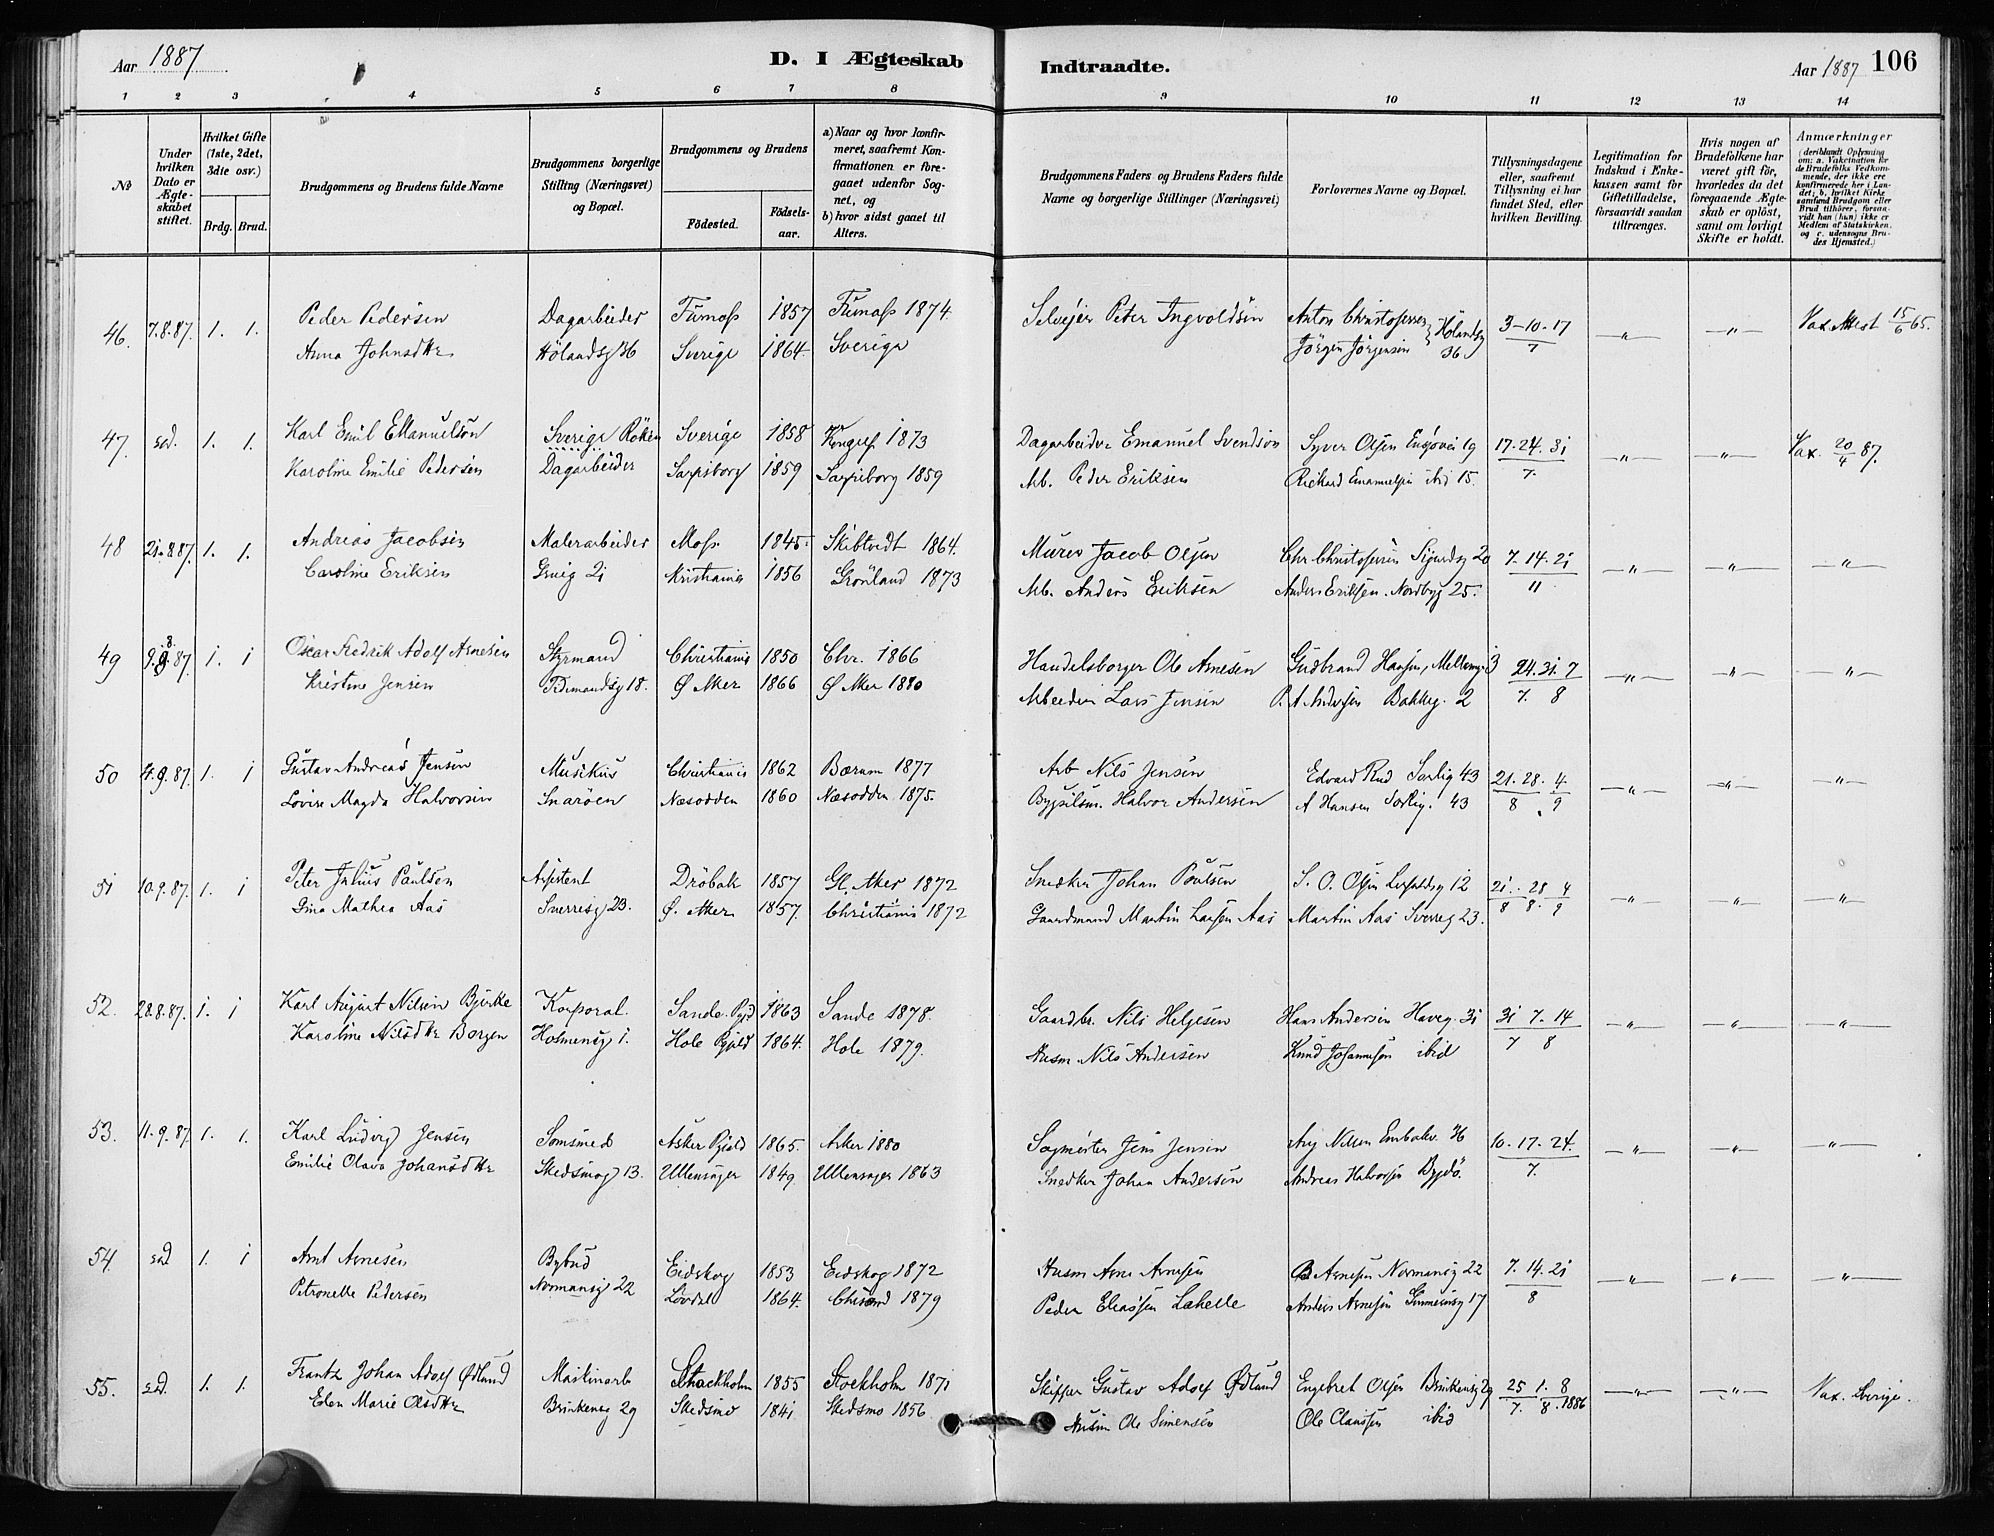 Aar 1887
D. I Ægteskab
Indtraadte.
Aar 1887 106
1 2 3 4 5 6 7 8 9 10 11 12 13 14
No
Under hvilken Dato er Ægteskabet stiftet.
Hvilket Gifte (1ste, 2det, 3die osv.)
Brdg. Brud.
Brudgommens og Brudens fulde Navne
Brudgommens borgerlige Stilling (Næringsvei) og Bopæl.
Brudgommens og Brudens
Födested.
Födselsaar.
a) Naar og hvor konfirmeret, saafremt Konfirmationen er foregaaet udenfor Sognet, og
b) hvor sidst gaaet til Alters.
Brudgommens Faders og Brudens Faders fulde Navne og borgerlige Stillinger (Næringsvei)
Forlovernes Navne og Bopæl.
Tillysningsdagene eller, saafremt Tillysning ei har fundet Sted, efter hvilken Bevilling.
Legitimation for Indskud i Enkekassen samt for Giftetilladelse, forsaavidt saadan tiltrænges.
Hvis nogen af Brudefolkene har været gift før, hvorledes da det foregaaende Ægteskab er oplöst, samt om lovligt Skifte er holdt.
Anmærkninger (deriblandt Oplysning om: a. Vakcination for de Brudefolks Vedkommende, der ikke ere konfirmerede her i Landet; b. hvilket Kirkesamfund Brudgom eller Brud tilhörer, forsaavidt han (hun) ikke er Medlem af Statskirken, og c. udensogns Brudes Hjemsted.)
46. 7.8.87. 1. 1. Peder Pedersen Dagarbeider Furnæss 1857 Furnæss 1874 Selveier Peter Ingvoldsen Anton Christofersen 3-10-17 Vax. Attest 15/6 65.
Anna Johnsdtr Hölandsg 36 Sverige 1864 Sverige Jörgen Jörgensen Hölandsg 36 7
47. sad. 1. 1. Karl Emil Emanuelson Sverige Röken Sverige 1858 Kongsf 1873 Dagarbeider Emanuel Svendson Syver Olsen 19 17-24-31 Vax. 20/4 87.
Karoline Emilie Pedersen Dagarbeider Sarpsborg 1859 Sarpsborg 1859 Arb. Peder Eriksen Rickard Emanuelsen ibid 15. 7.
48 21.8.87. 1. 1. Andreas Jacobsen Malerarbeider Moss 1845 Skibtvedt 1864. Murer Jacob Olsen Chr Christofersen Sigurdsg 20 7-14-21
Caroline Eriksen 21 Kristiania 1856 Grönland 1873 Arb. Anders Eriksen Anders Eriksen. Nordbyg 25. 11
49 9.8.87 1. 1 Oscar Fredrik Adolf Arnesen Styrmand Christiania 1850 Chr. 1866 Handelsborger Ole Arnesen Gudbrand Hansen, 3 24.31.7
Kristine Jensen Tidemandsg 18. Ø Aker 1866 Ø Aker 1880 Arbeider Lars Jensen P. A Andersen Bakkeg. 2 7. 8
50 4.9.87. 1. 1 Gustav Andreas Jensen Musikus Christiania 1862 Bærum 1877 Arb Nils Jensen Edvard Rud Sorlig 43 21.28.4
Lovise Magda Halvorsen Snaröen Næsodden 1860 Næsodden 1875. Halvor Andersen A Hansen Sorlig. 43 8 9
51 10.9.87. 1. 1 Peter Julius Paulsen Assistent Dröbak 1857 Gl. Aker 1872 Snedker Johan Poulsen S. O. Olsen 12 21. 28 4
Gina Mathea Aas Sverresg 23. Ø. Aker 1857. Christiania 1872 Gaardmand Martin Larsen Aas Martin Aas Sverreg 23. 8 8. 9
52. 28.8.87. 1. 1 Karl August Nilsen Bjerke Korporal. Sande. Pgjd 1863 Sande 1878. Gaardbr. Nils Helgesen Hans Andersen Haveg. 31 31 7-14
Karoline Nilsdtr Borgen Holmensg 1. Hole Pgjæld 1864. Hole 1879. Husm Nils Andersen Knud Johannesen ibid 7 8
53. 11.9.87. 1. 1. Karl Ludvig Jensen Somsmed Asker Pgjæld 1865. Asker 1880 Sagmester Jens Jensen Nilsen 10-17-24.
Emilie Olava Johansdtr Skedsmog 13. Ullensager 1849. Ullensager 1863 Snedker Johan Andersen Andreas Halvorsen Bygdö. 7.
54. sad 1. 1 Arnt Arnesen Bybud Eidskog 1853 Eidskog 1872 Husm Arne Arnesen B Arnesen Normansg 22 7.14.21
Petronelle Pedersen Normansg 22 1864. Chrsand 1879 Peder Eliassen Lakelle Anders Arnesen 17 8
55. sad. 1. 1. Frantz Johan Adolf Ödlund Maskinarb Stockholm 1855 Stockholm 1871 Skipper Gustav Adolf Ödlund Engebret Olsen Brinkensg 29 25 1. 8
Elen Marie Olsdtr Brinkensg 29 Skedsmo 1841 Skedsmo 1856 Husm Ole Simensen Ole Clausen ibid 7. 8. 1886 Vax. Sverige.